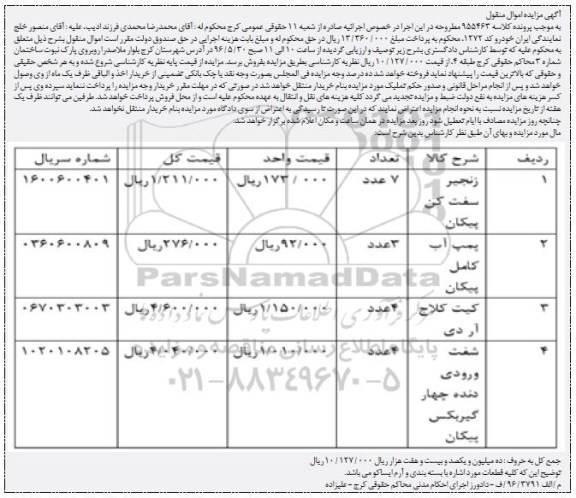 آگهی مزایده اموال منقول
به موجب پرونده کلاسه ۹۵۵۴۶۳ مطروحه در این اجرا در خصوص اجرائیه صادره از شعبه ۱۱ حقوقی عمومی کرج محکوم له : آقای محمدرضا محمدی فرزند ادیب، علیه : آقای منصور خلج
نمایندگی ایران خودرو کد ۱۲۷۲، محکوم به پرداخت مبلغ ۱۳/۳۶۰/۰۰۰ ریال در حق محکوم له و مبلغ بابت هزینه اجرایی در حق صندوق دولت مقرر است اموال منقول بشرح ذیل متعلق
به محکوم علیه که توسط کارشناس دادگستری بشرح زیر توصیف و ارزیابی گردیده از ساعت ۱۰ الی ۱۱ صبح ۹۶/۵/۳۰ در آدرس شهرستان کرج بلوار ملاصدرا روبروی پارک نبوت ساختمان
شماره ۳ محاکم حقوقی کرج طبقه ۴، از قیمت ۱۰/۱۲۷/۰۰۰ ریال نظریه کارشناسی بطریق مزایده بفروش برسد. مزایده از قیمت پایه نظریه کارشناسی شروع شده و به هر شخص حقیقی
و حقوقی که بالاترین قیمت را پیشنهاد نماید فروخته خواهد شد ده درصد وجه مزایده فی المجلس بصورت وجه نقد یا چک بانکی تضمینی از خریدار اخذ و الباقی ظرف یک ماه از وی وصول
خواهد شد و پس از انجام مراحل قانونی و صدور حکم تملیک مورد مزایده بنام خریدار منتقل خواهد شد در صورتی که در مهلت مقرر خریدار وجه مزایده را پرداخت ننماید سپرده وی پس از
کسر هزینه های مزایده به نفع دولت ضبط و مزایده تجدید می گردد کلیه هزینه های نقل و انتقال به عهده محکوم علیه است و از محل فروش پرداخت خواهد شد. طرفین می توانند ظرف یک
هفته از تاریخ مزایده نسبت به نحوه انجام مزایده اعتراض نمایند که در این صورت تا رسیدگی به اعتراض از سوی دادگاه مورد مزایده بنام خریدار منتقل نخواهد شد.
چنانچه روز مزایده مصادف با ایام تعطیل شود روز بعد مزایده در همان ساعت و مکان اعلام شده برگزار خواهد شد.
مال مورد مزایده و بهای آن طبق نظر کارشناس بدین شرح است:
ردیف شرح کالا تعداد قیمت واحد قیمت کل شماره سریال
۱ زنجیر ۷ عدد ۱۷۳/۰۰۰ ریال ۱/۲۱۱/۰۰۰ریال ۱۶۰۰۶۰۰۴۰۱
سفت کن
پیکان
۲ پمپ آب ۳عدد ۹۲/۰۰۰ریال ۲۷۶/۰۰۰ریال ۰۳۶۰۶۰۰۸۰۹
کامل
پیکان
۳ کیت کلاچ ۴عدد ۱/۱۵۰/۰۰۰ریال ۴/۶۰۰/۰۰۰ریال ۰۶۷۰۳۰۳۰۰۳
آر دی
۴ شفت ۴عدد ۱/۰۱۰/۰۰۰ریال ۴/۰۴۰/۰۰۰ریال ۱۰۲۰۱۰۸۲۰۵
ورودی
دنده چهار
گیربکس
پیکان
ParsNamadData
پایگاه اطلاع رسانی مناقصه و مزایده
۰۲۱-۸۸۳۴۹۶۷۰-۵
جمع کل به حروف : ده میلیون و یکصد و بیست و هفت هزار ریال ۱۰/۱۲۷/۰۰۰ ریال
توضیح این که کلیه قطعات مورد اشاره با بسته بندی و آرم ایساکو می باشد.
م/الف ۹۶/۳۷۹۱/ف - دادورز اجرای احکام مدنی محاکم حقوقی کرج - علیزاده